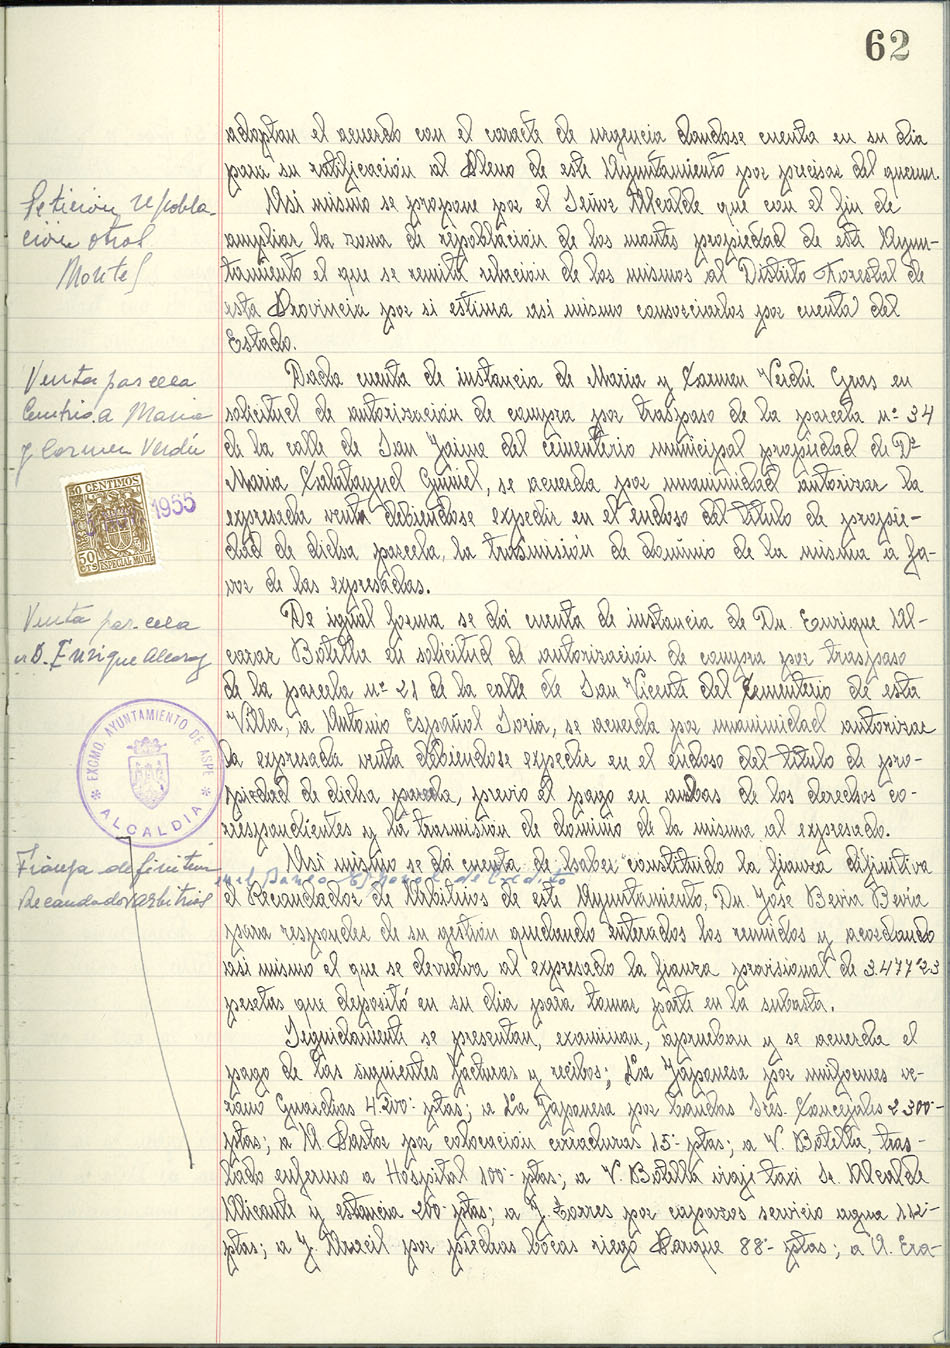 62
adoptan el acuerdo con el caracte de urgencia dandose cuenta en su dia
para su ratificación al Pleno de este Ayuntamiento por precisar del quorum.
Petición repobla-
ción otros
Montes
Asi mismo se propone por el Señor Alcalde que con el fin de
ampliar la zona de repoblación de los montes propiedad de este Ayun-
tamiento el que se remita relación de los mismos al Distrito Forestal de
esta Provincia por si estima asi mismo consorciarlos por cuenta del
Estado.
Venta parcela
Cementrio. a Maria
y Carmen Verdú
Dada cuenta de instancia de Maria y Carmen Verdú Gras en
solicitud de autorización de compra por traspaso de la parcela nº 34
de la calle de San Jaime del cementerio municipal propiedad de Dª
Maria Calatayud, se acuerda por unanimidad autorizar la
expresada venta debiendose expedir en el endoso del titulo de propie-
dad de dicha parcela, la trasmisión de dominio de la misma a fa-
vor de las expresadas.
50 CENTIMOS
1955
50
CTS ESPECIAL MOVIL
Venta parcela
a D. Enrique Alcaraz
De igual forma se dá cuenta de instancia de Dn. Enrique Al-
caraz Botella en solicitud de autorización de compra por traspaso
de la parcela nº 21 de la calle de San Vicente del Cementerio de esta
Villa, a Antonio Español Soria, se acuerda por unanimidad autorizar
la expresada venta debiendose expedir en el endoso del titulo de pro-
piedad de dicha parcela, previo el pago en ambas de los derechos co-
rrespondientes y la trasmisión de dominio de la misma al expresado.
EXCMO. AYUNTAMIENTO DE ASPE
* ALCALDIA *
Fianza definitiva
Recaudador arbitrios
Asi mismo se dá cuenta de haber constituido la fianza difinitiva
en el Banco Español de Crédito
el Recaudador de Arbitrios de este Ayuntamiento, Dn. Jose Beviá Beviá
para responder de su gestión quedando enterados los reunidos y acordando
asi mismo el que se devuelva al expresado la fianza provisional de 3.477'23
pesetas que depositó en su dia para tomar parte en la subasta.
Seguidamente se presentan, examinan, aprueban y se acuerda el
pago de las siguientes facturas y recibos; La Japonesa por uniformes ve-
rano Guardias 4.200- ptas; a La Japonesa por bandas Sres. Concejales 2300-
ptas; a M Pastor por colocación cerraduras 15- ptas; a V. Botella, tras-
lado enfermo a Hospital 100- ptas; a V. Botella viaje taxi Sr. Alcalde
Alicante y estancia 200- ptas; a J. Torres por capazos servicio agua 112-
ptas; a J. Almecil por piedras bocas riego Parque 88- ptas; a A. Era-